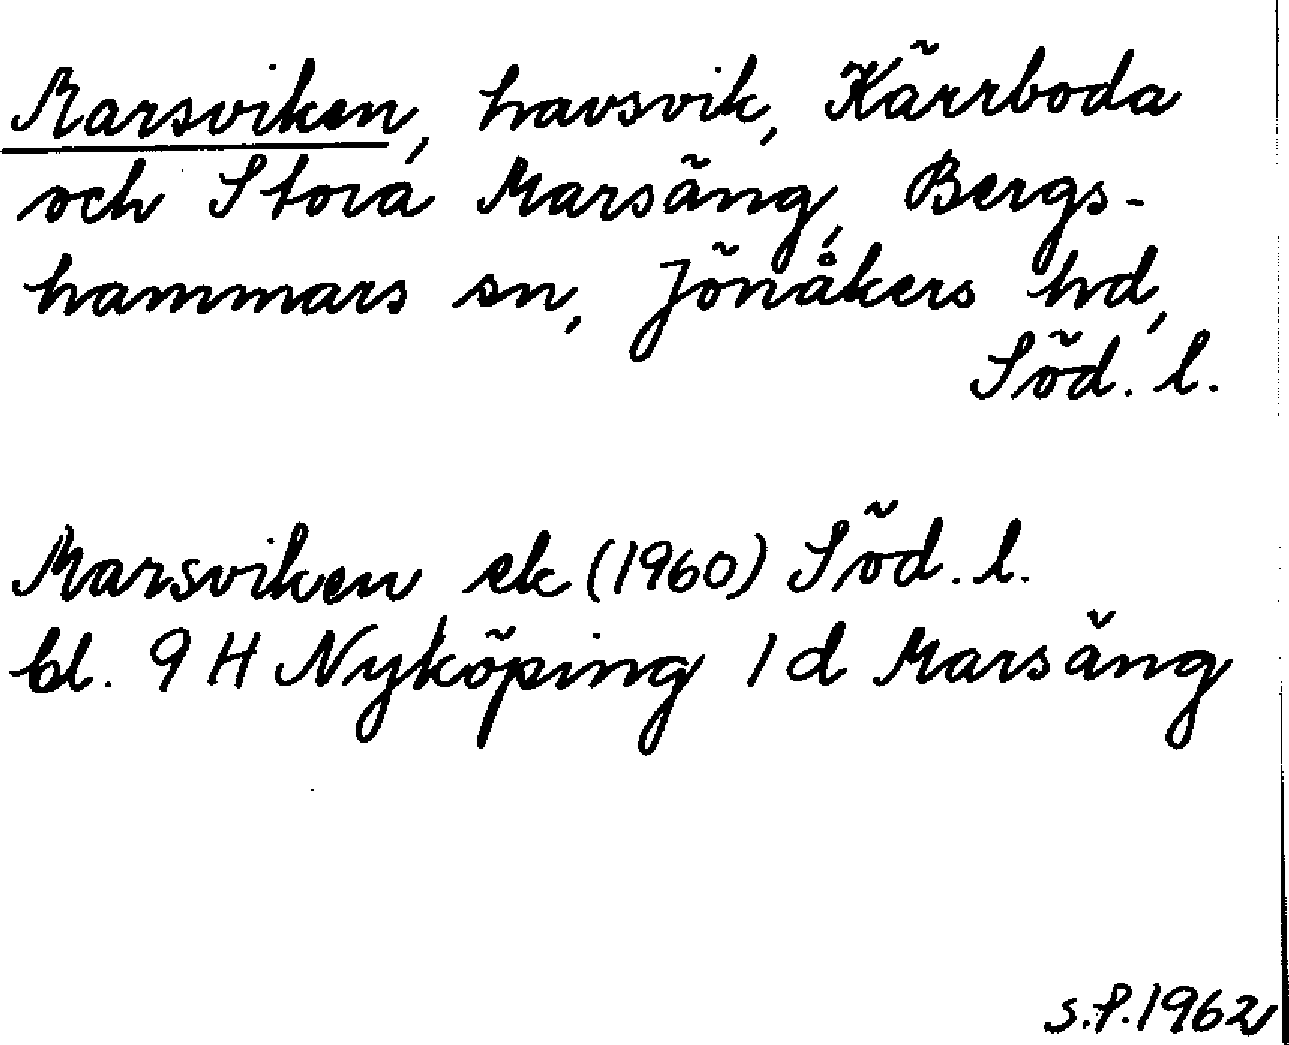 Marsviken, havsvik, Kärrboda
och Stora Marsäng, Bergs-
hammars sn, Jönåkers hd,
Söd. l.
Marsviken ek (1960) Söd. l.
bl. 9 H Nyköping 1 d Marsäng
S.P. 1962